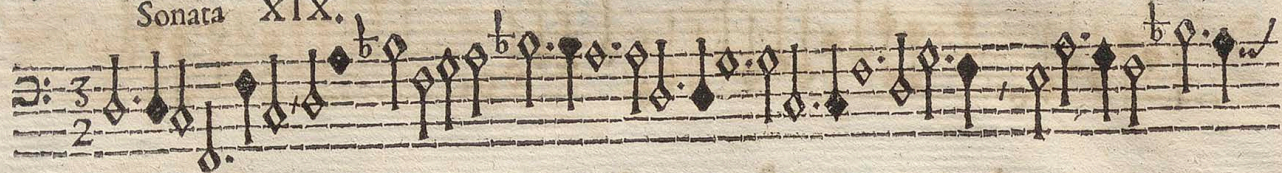 Sonata XIX.
3
2